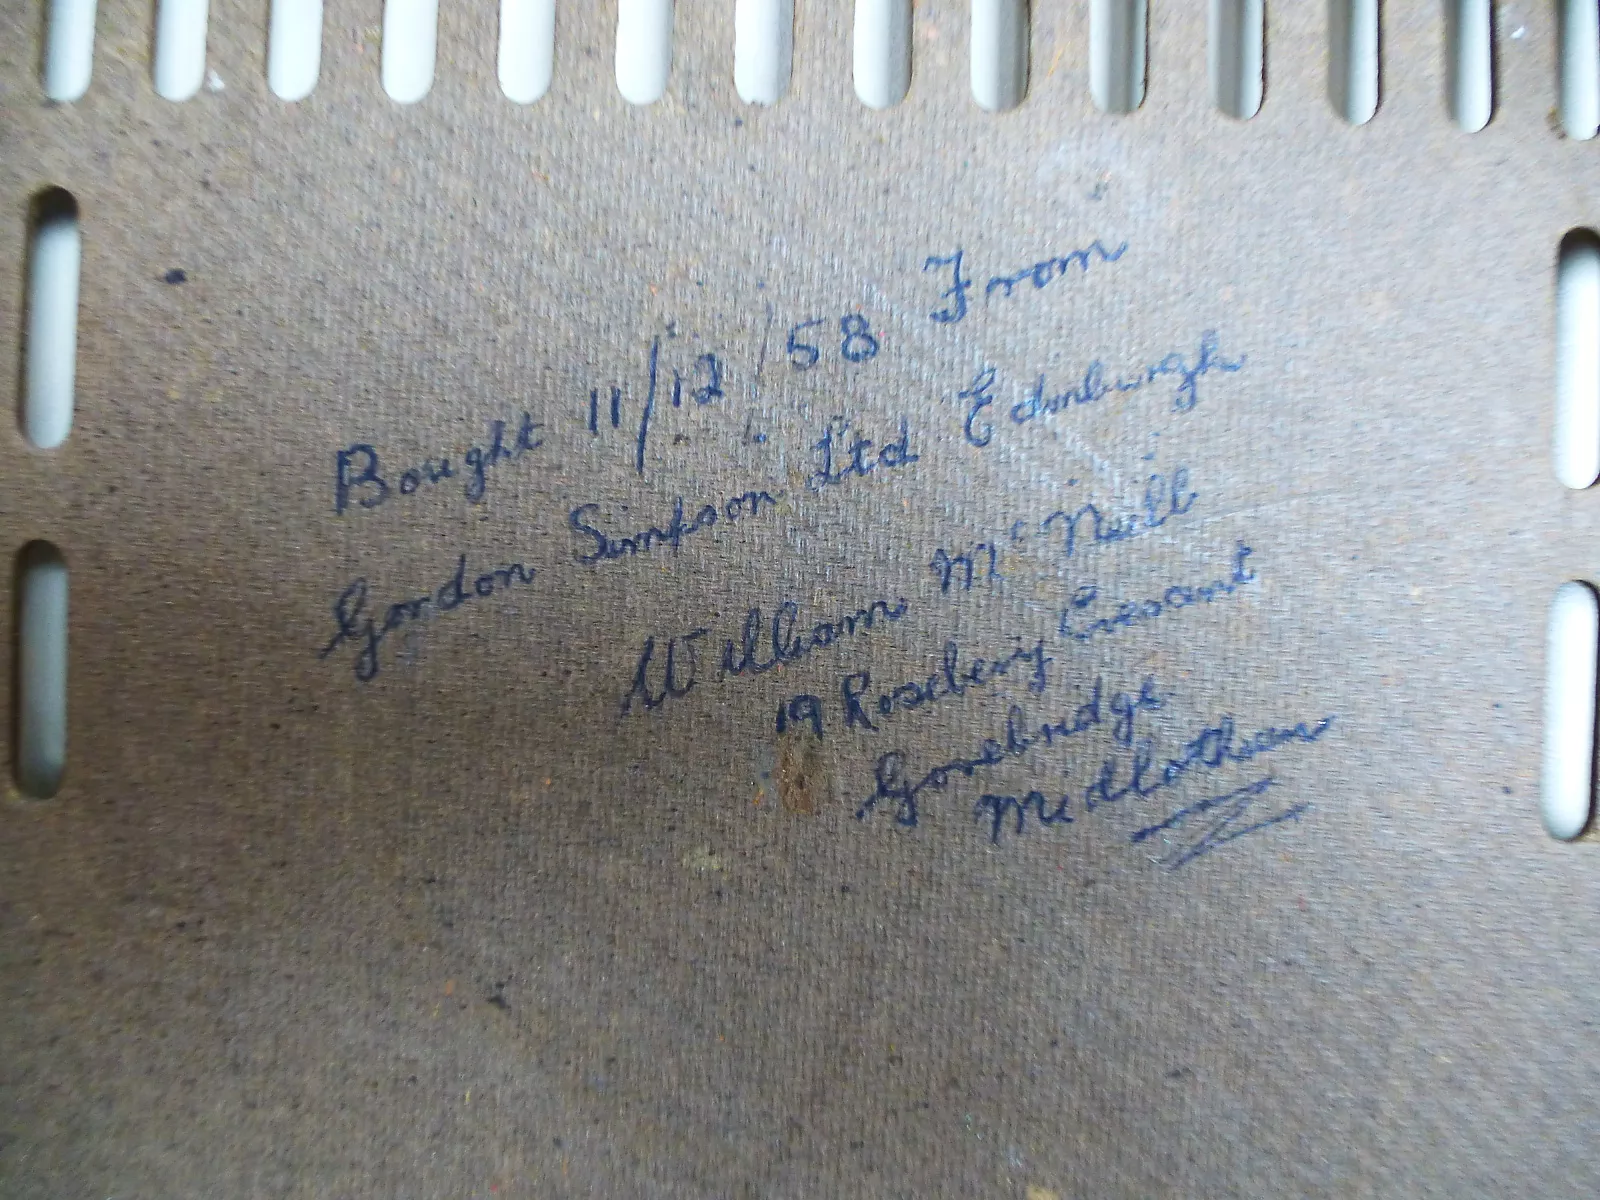 Bought 11/12/58 From
Gordon Simpson Ltd Edinburgh
William McNeill
19 Rosebery Crescent
Gorebridge
Midlothian